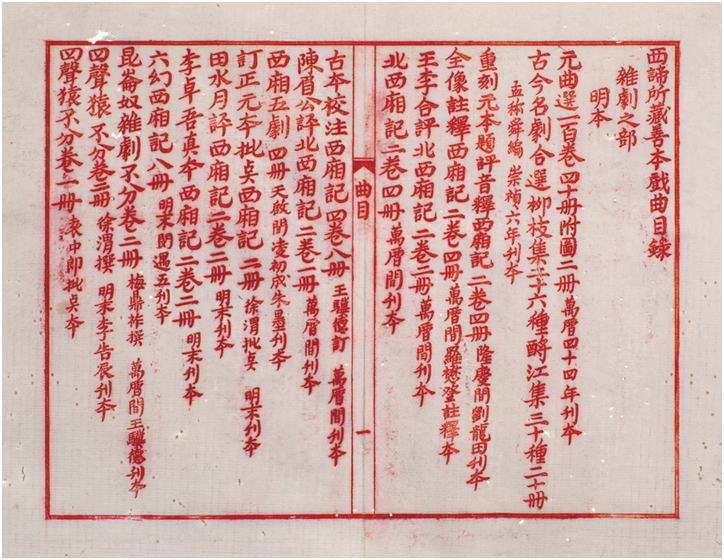 西諦所藏善本戲曲目錄
雜劇之部
明本
元曲選一百卷四十册附圖二册 萬曆四十四年刊本
古今名劇合選柳枝集二十六種酹江集三十種二十册
孟稱舜編 崇禎六年刊本
重刻元本題評音釋西廂記二卷四册 隆慶間劉龍田刊本
全像註釋西廂記二卷四册 萬曆間羅懋登註釋本
王李合評北西廂記二卷二册 萬曆間刊本
北西廂記二卷四册 萬曆間刊本
曲目
一
古本校注西廂記四卷八册 王驥德訂 萬曆間刊本
陳眉公評北西廂記二卷一册 萬曆間刊本
西廂五劇 四册 天啟間凌初成朱墨刊本
訂正元本批点西廂記 二册 徐渭批点 明末刊本
田水月評西廂記二卷二册 明末刊本
李卓吾真本西廂記二卷二册 明末刊本
六幻西廂記八册 明末閔遇五刊本
崑崙奴雜劇不分卷二册 梅鼎祚撰 萬曆間王驥德刊本
四聲猿 不分卷二册 徐渭撰 明末李告辰刊本
四聲猿不分卷一册 袁中郎批点本